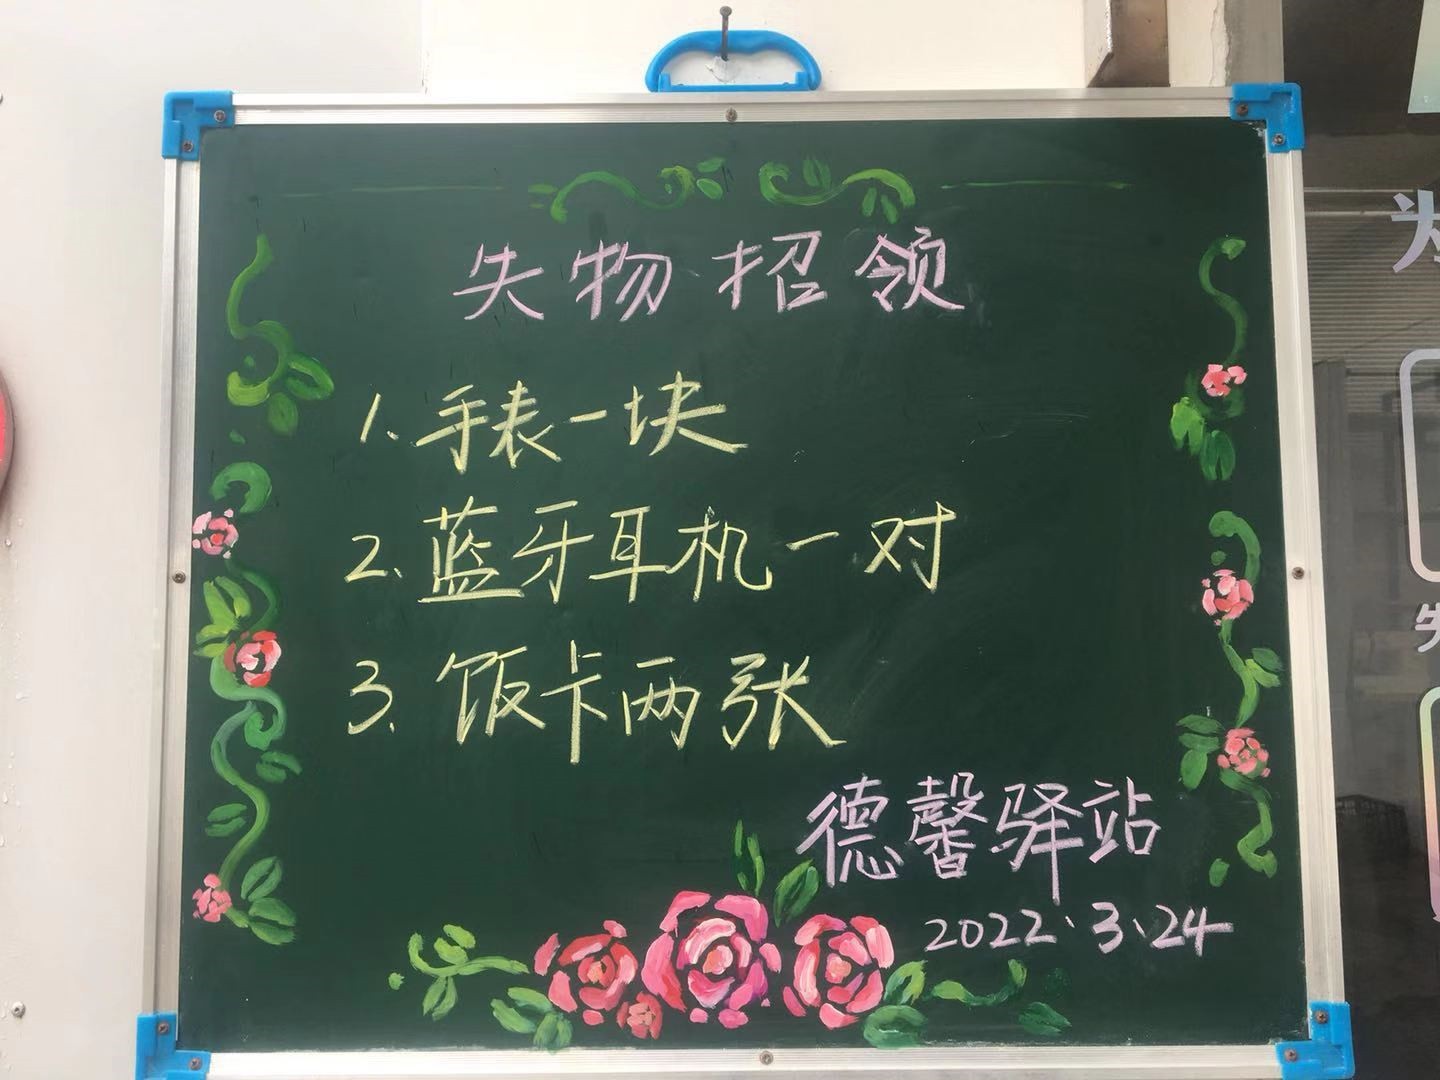 失物招领
1.手表一块
2.蓝牙耳机一对
3.饭卡两张
德馨驿站
2022.3.24
为